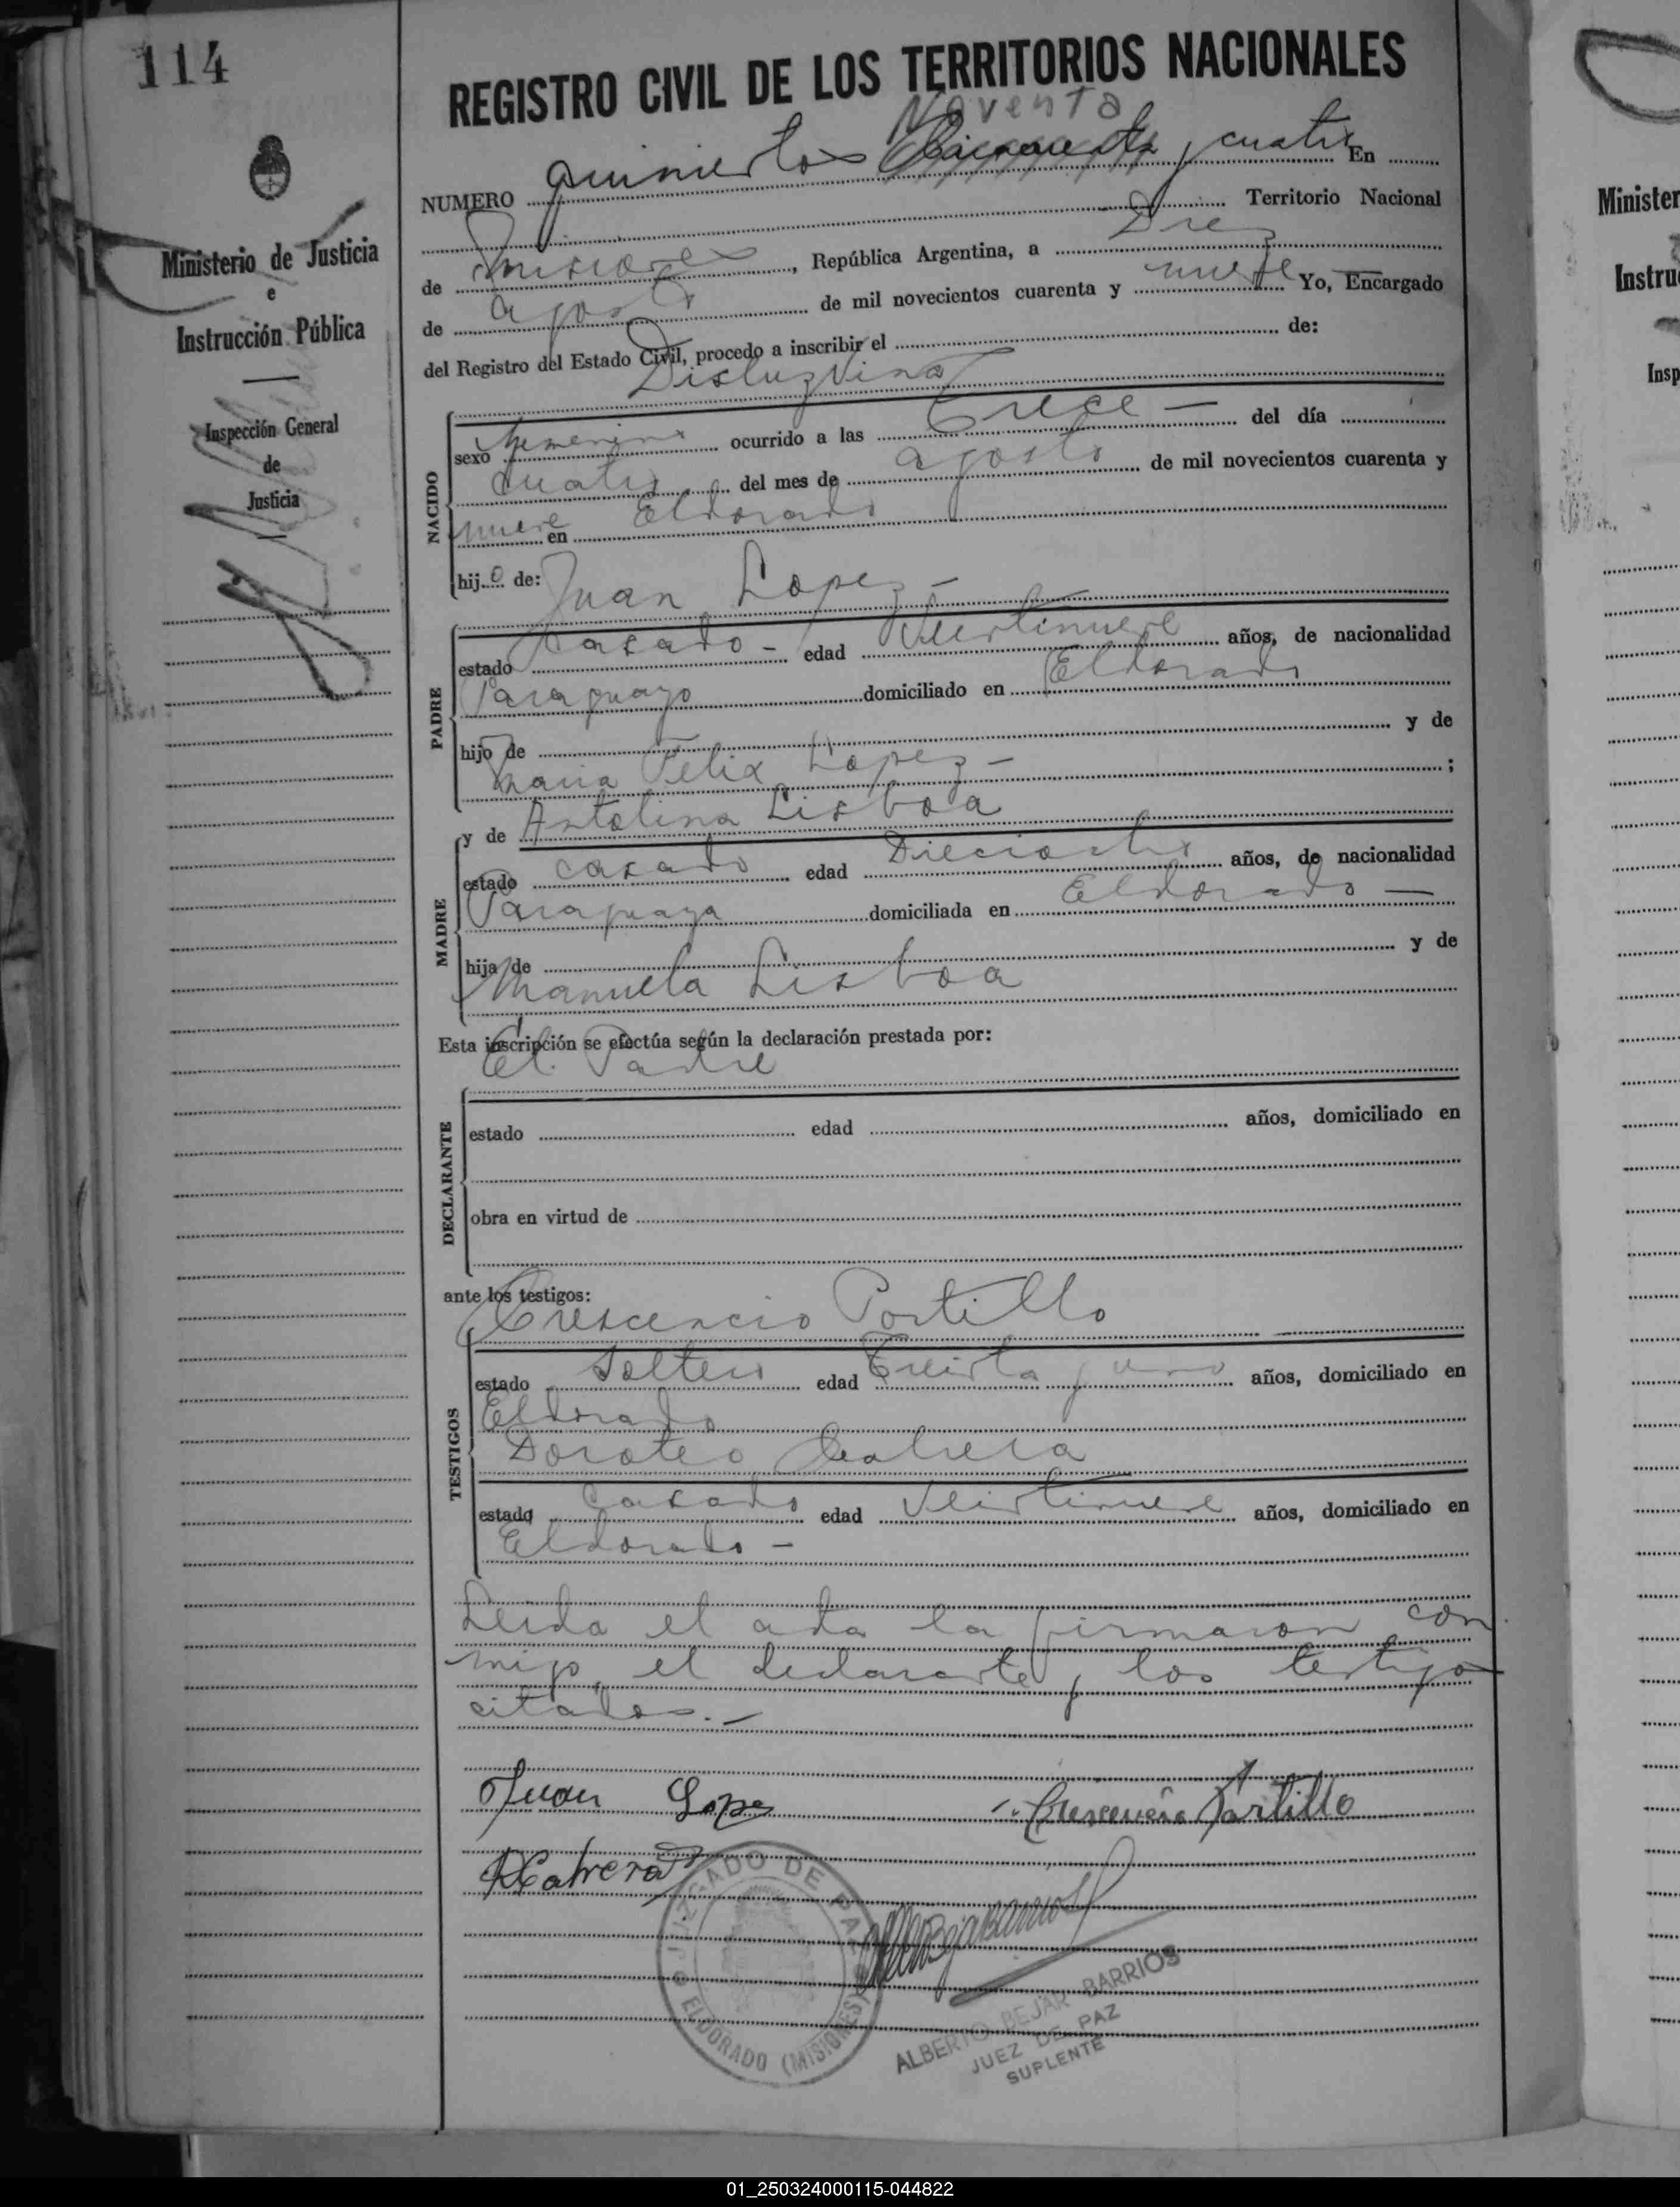 114
REGISTRO CIVIL DE LOS TERRITORIOS NACIONALES
Noventa
NUMERO quinientos Cincuenta y cuatro En
Territorio Nacional
de Misiones, República Argentina, a Diez
de agosto de mil novecientos cuarenta y nueve Yo, Encargado
del Registro del Estado Civil, procedo a inscribir el de:
Ministerio de Justicia
e
Instrucción Pública
Inspección General
de
Justicia
NACIDO
sexo femenino ocurrido a las Trece — del día
cuatro del mes de agosto de mil novecientos cuarenta y
nueve en Eldorado
hijo de: Juan Lopez —
PADRE
estado Casado — edad Veintinueve años, de nacionalidad
Paraguayo domiciliado en Eldorado
hijo de y de
Maria Felix Lopez —;
y de Antolina Lisboa
MADRE
estado casado edad Dieciocho años, de nacionalidad
Paraguaya domiciliada en Eldorado —
hija de y de
Manuela Lisboa
Esta inscripción se efectúa según la declaración prestada por:
El Padre
DECLARANTE
estado edad años, domiciliado en
obra en virtud de
ante los testigos:
Crescencio Portillo
TESTIGOS
estado Soltero edad Treinta y uno años, domiciliado en
Eldorado
Doroteo Cabrera
estado Casado edad Veintinueve años, domiciliado en
Eldorado —
Leida el acta la firmaron con
migo, el declarante y los testigos
citados.—
Juan Lopez Crescencio Portillo
DCabrera
JUZGADO DE PAZ
ELDORADO (MISIONES)
ALBERTO BEJAR BARRIOS
JUEZ DE PAZ
SUPLENTE
Minister
Instru
Insp
01_250324000115-044822